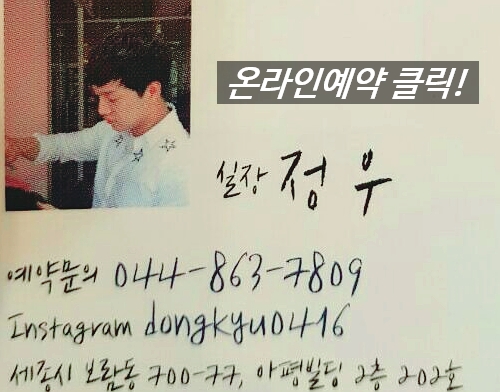 온라인예약 클릭!
실장 정우
예약문의 044-863-7809
Instagram dongkyu0416
세종시 보람동 700-77, 아평빌딩 2층 202호